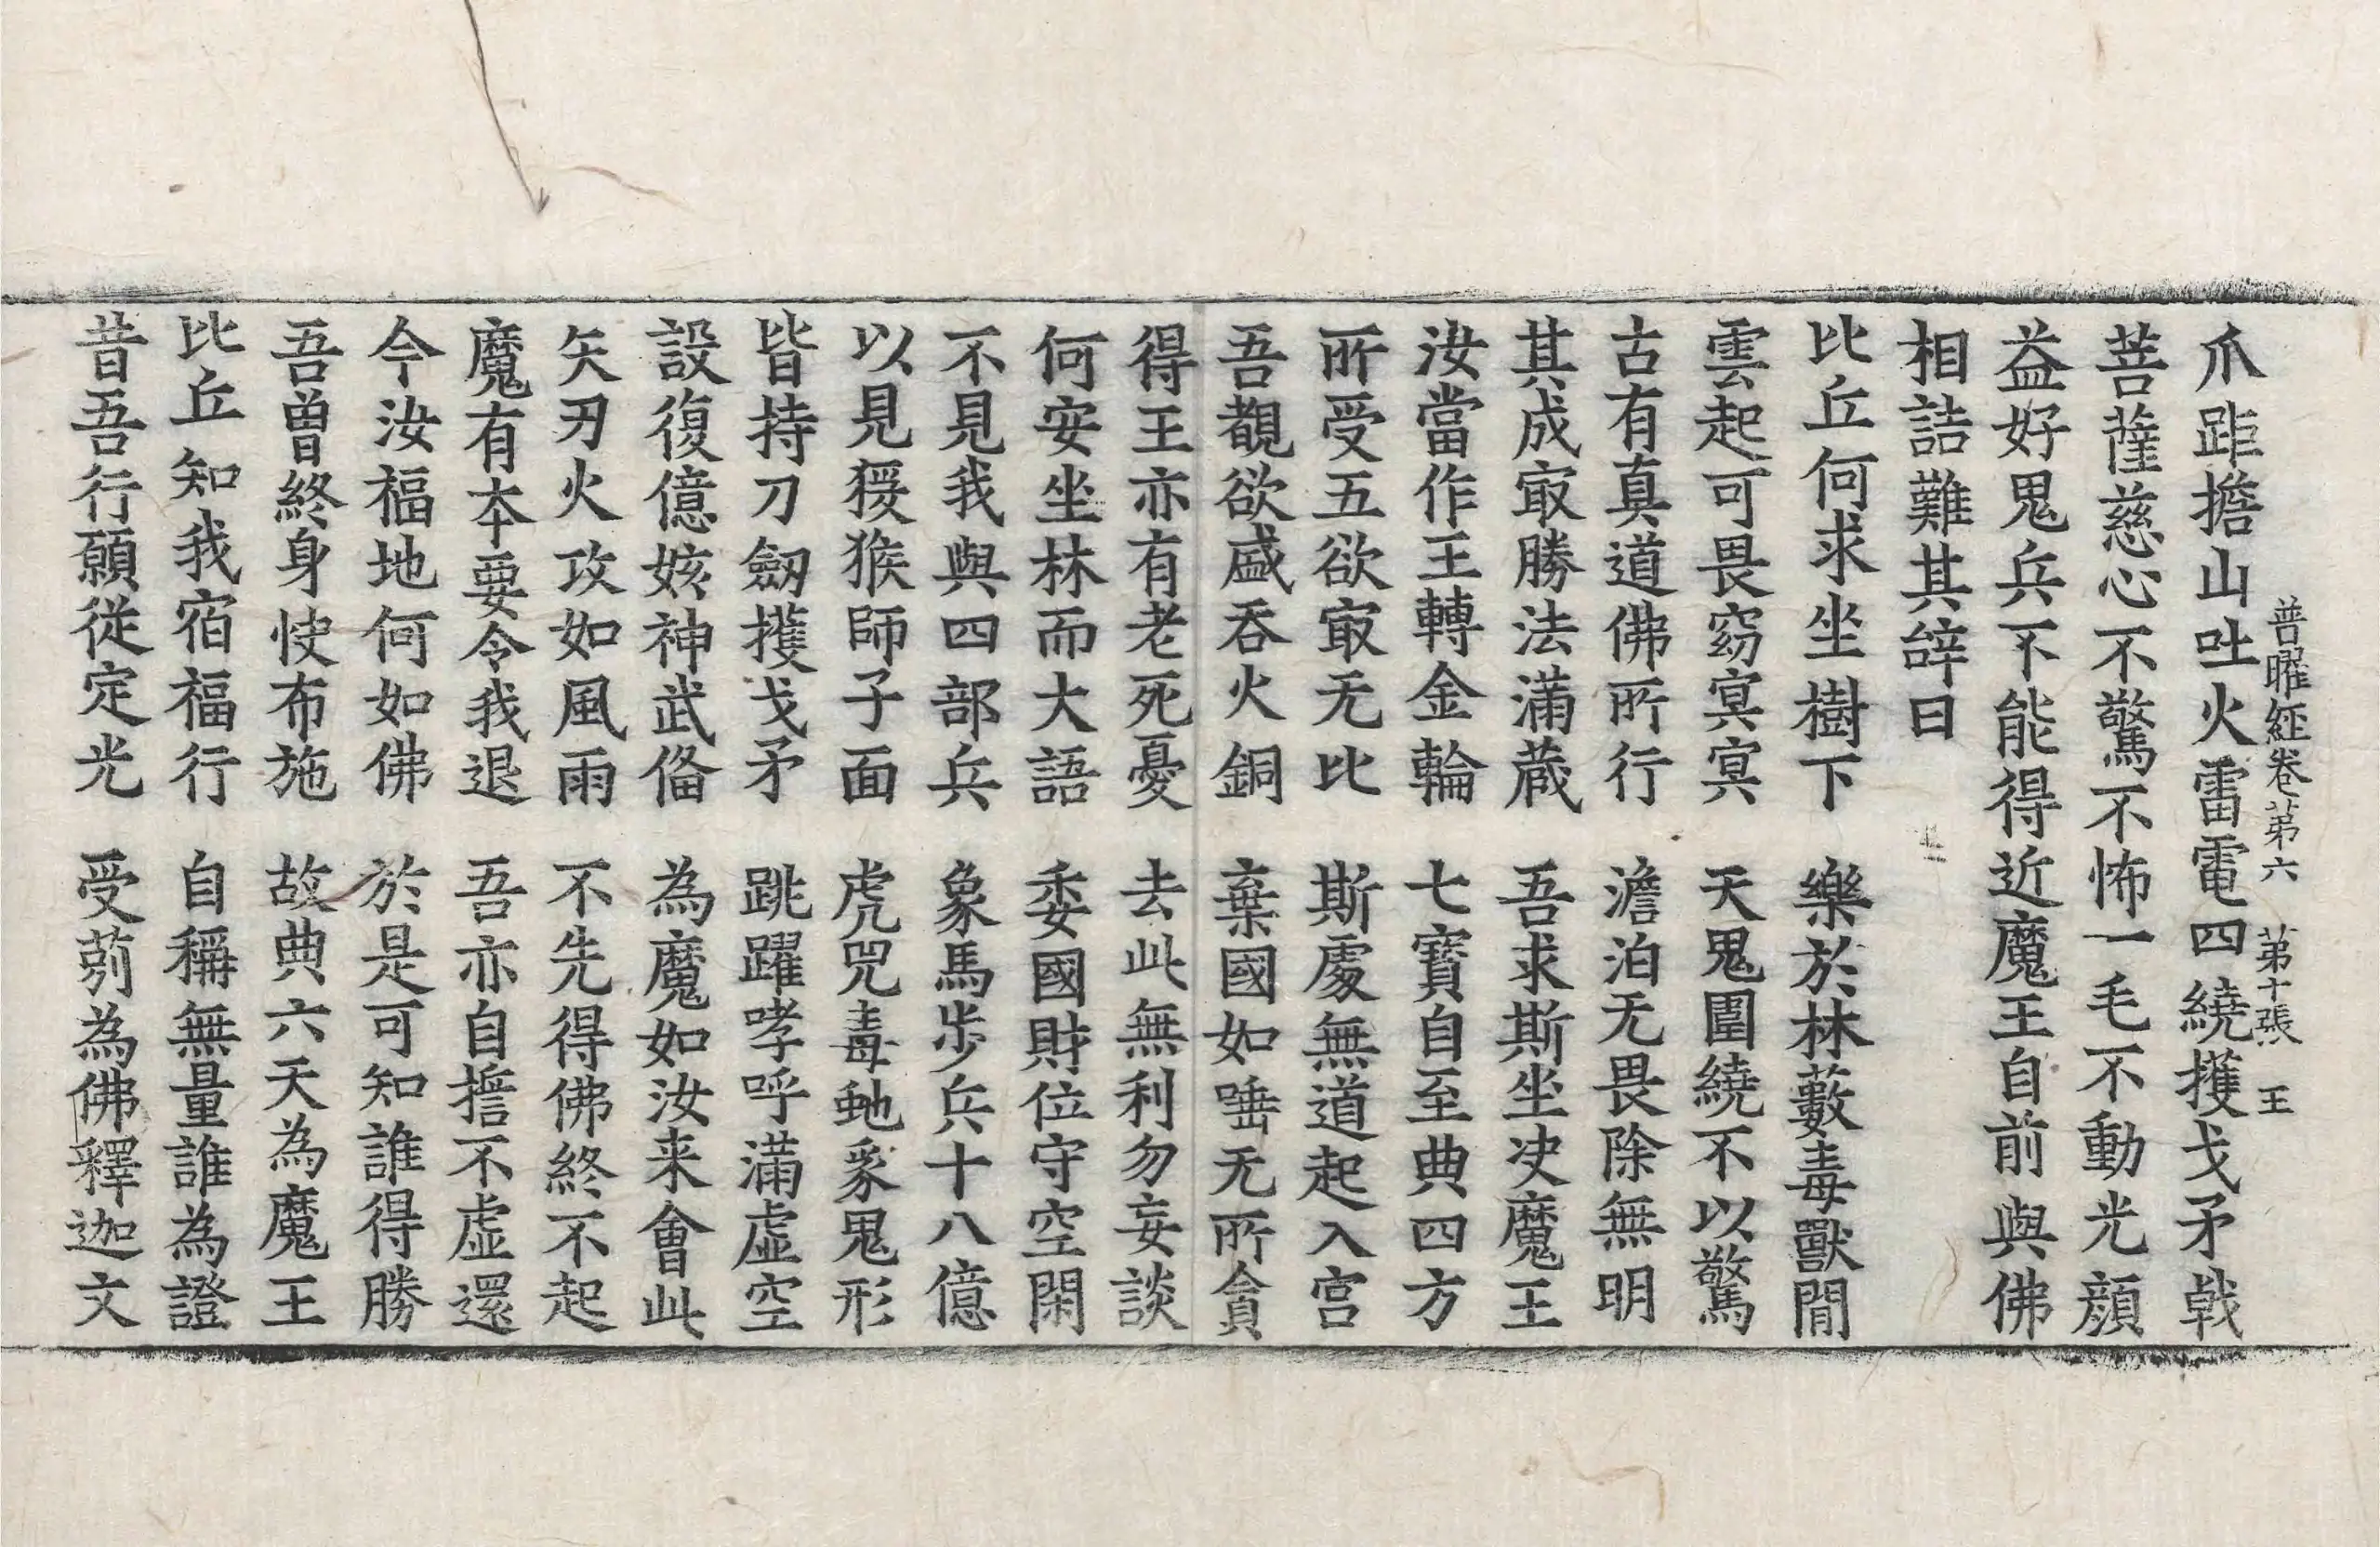 普曜經卷第六 第十張 王
爪距擔山吐火雷電四繞擭戈矛戟
菩薩慈心不驚不怖一毛不動光顏
益好鬼兵不能得近魔王自前與佛
相詰難其辝曰
比丘何求坐樹下 樂於林藪毒獸間
雲起可畏窈冥冥 天鬼圍繞不以驚
古有真道佛所行 澹泊无畏除無明
其成㝡勝法滿蔵 吾求斯坐决魔王
汝當作王轉金輪 七寶自至典四方
所受五欲㝡无比 斯處無道起入宫
吾覩欲盛吞火銅 棄國如唾无所貪
得王亦有老死憂 去此無利勿妄談
何安坐林而大語 委國財位守空閑
不見我與四部兵 象馬步兵十八億
以見猨猴師子面 虎兕毒虵豖鬼形
皆持刀劔擭戈矛 跳躍哮呼滿虛空
設復億姟神武俻 為魔如汝来會此
矢刃火攻如風雨 不先得佛終不起
魔有本要令我退 吾亦自擔不虛還
今汝福地何如佛 於是可知誰得勝
吾曽終身快布施 故典六天為魔王
比丘知我宿福行 自稱無量誰為證
昔吾行願從定光 受莂為佛釋迦文